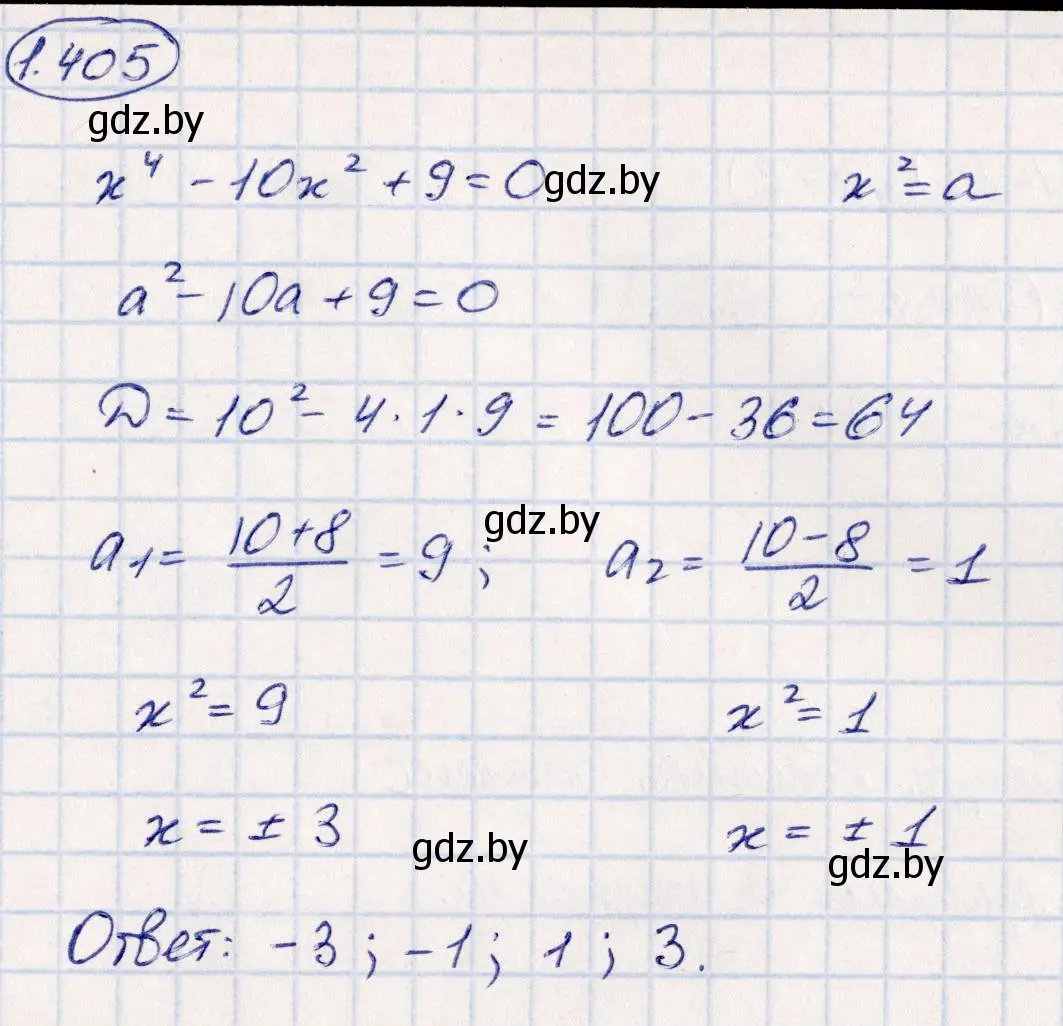 1.405
gdz.by
x⁴ - 10x² + 9 = 0 gdz.by x² = a
a² - 10a + 9 = 0
D = 10² - 4 · 1 · 9 = 100 - 36 = 64
gdz.by
a₁ = (10+8)/2 = 9 ; a₂ = (10-8)/2 = 1
x² = 9 x² = 1
x = ± 3 x = ± 1
gdz.by gdz.by
Ответ: -3 ; -1 ; 1 ; 3.